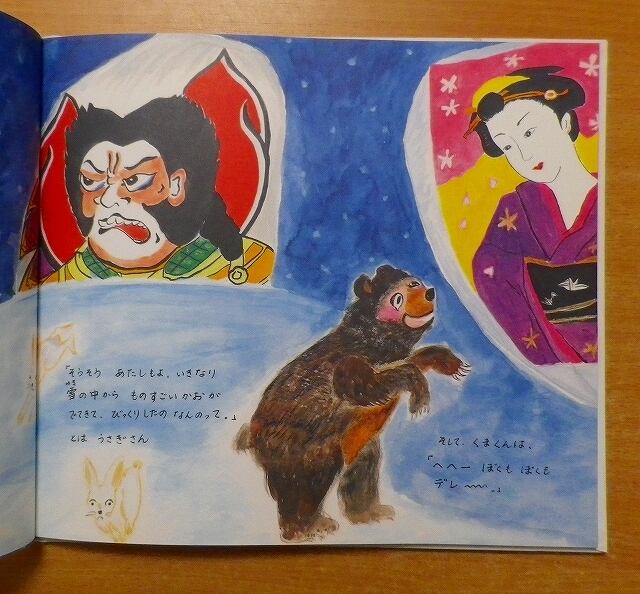 「そうそう あたしもよ、いきなり
ゆき
雪の中から ものすごいかおが
でてきて、びっくりしたの なんのって。」
とは うさぎさん
そして、くまくんは、
「へへー ぼくも ぼくも
デレ〜〜。」